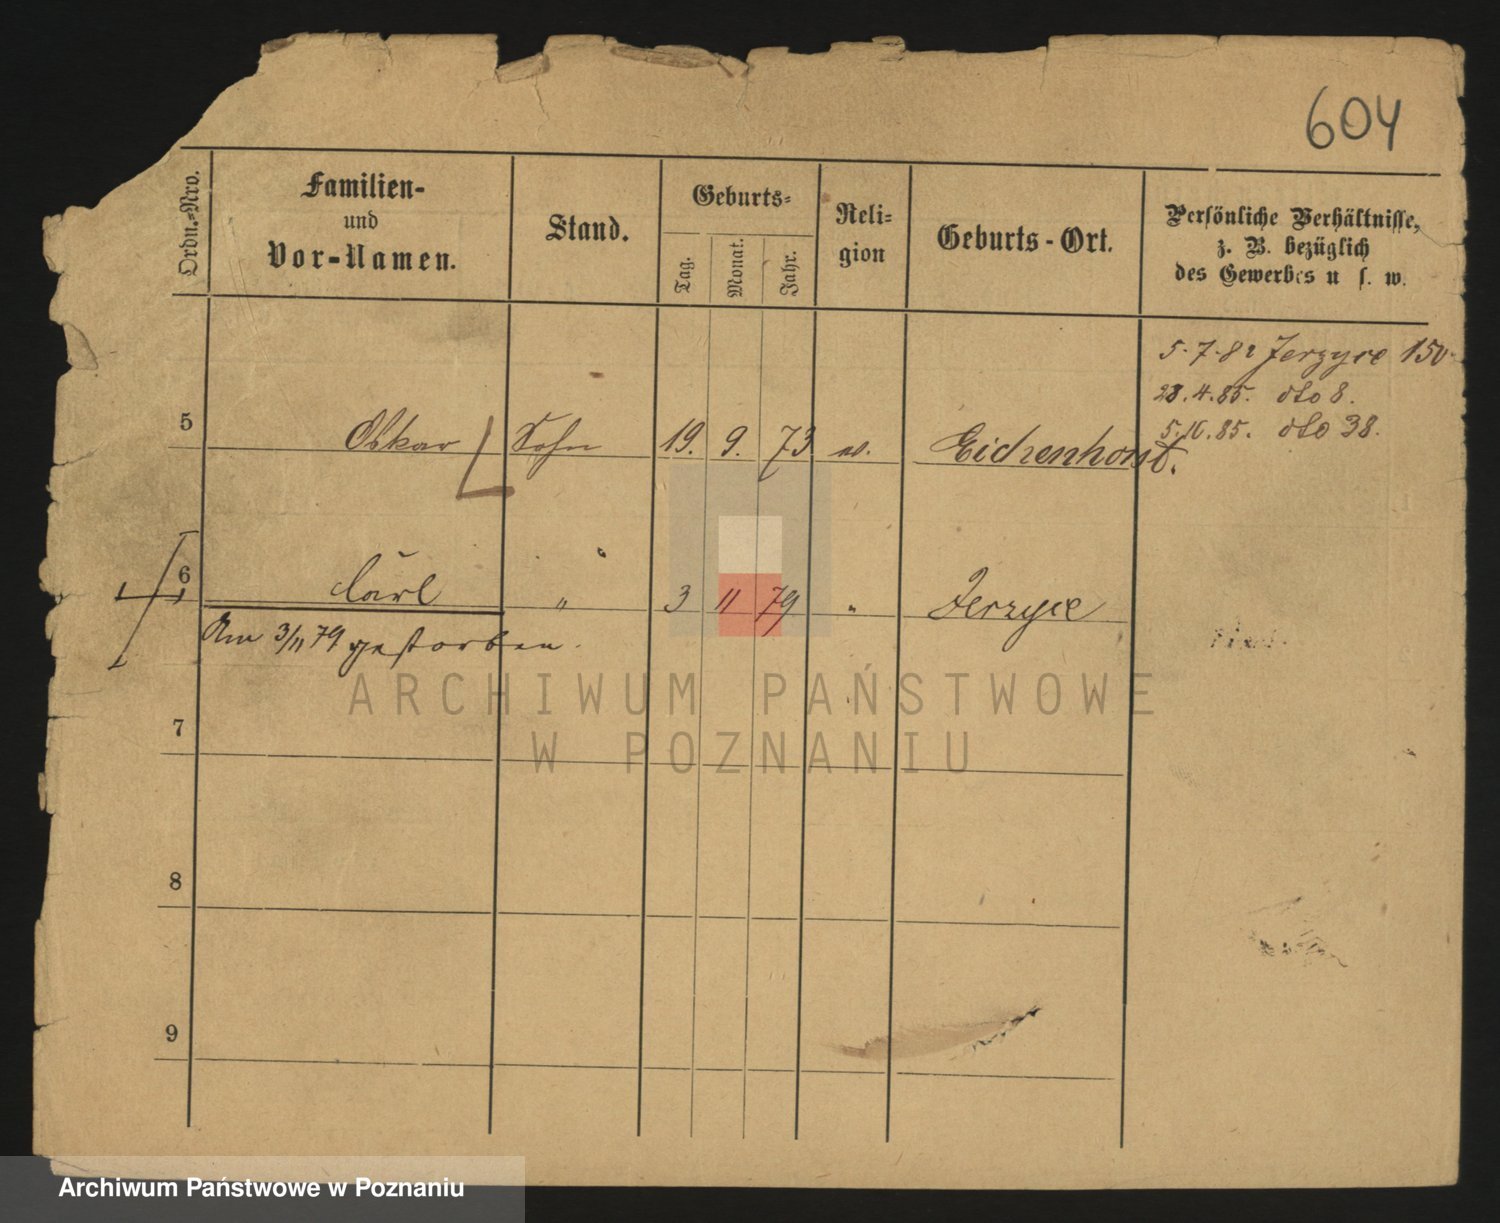 604
Ordn.-Nro.
Familien-
und
Vor-Namen.
Stand.
Geburts-
Tag.
Monat.
Jahr.
Reli-
gion
Geburts-Ort.
Persönliche Verhältnisse,
z. B. bezüglich
des Gewerbes u s. w.
5.7.82 Jerzyce 150
28.4.85. dto 8.
5.10.85. dto 38.
5 Oskar Sohn 19. 9. 73 ev. Eichenhorst.
6 Carl " 3 11 79 " Jerzyce
Am 3/11 79 gestorben.
7
8
9
ARCHIWUM PAŃSTWOWE
W POZNANIU
Archiwum Państwowe w Poznaniu